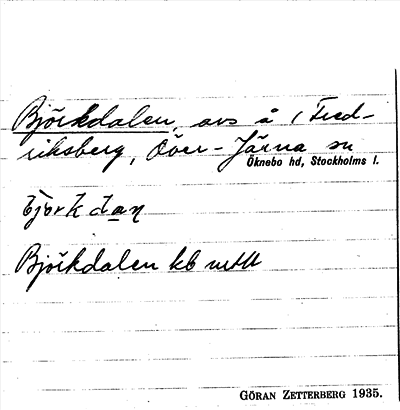 Björkdalen, avs å 1 Fred-
riksberg, Över-Järna sn
Öknebo hd, Stockholms l.
bjơrk dạṇ
Björkdalen kb mtll
GÖRAN ZETTERBERG 1935.